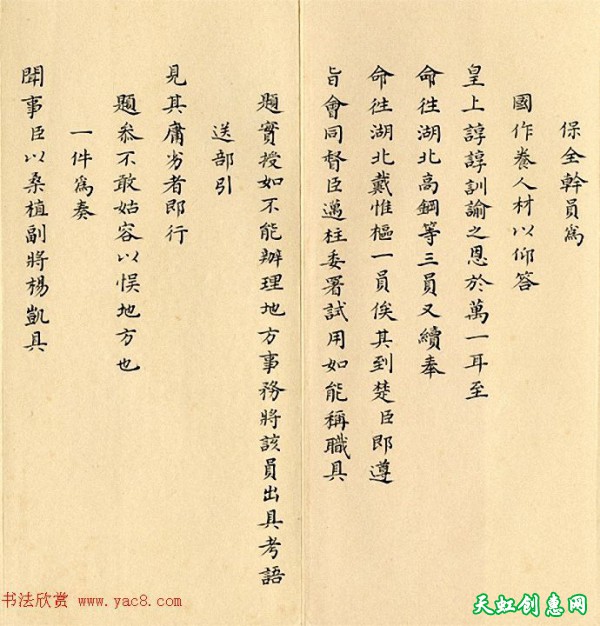 保全幹員爲
國作養人材以仰答
皇上諄諄訓諭之恩於萬一耳至
命往湖北高鋼等三員又續奉
命往湖北戴惟樞一員俟其到楚臣即遵
旨會同督臣邁柱委署試用如能稱職具
題實授如不能辦理地方事務將該員出具考語
送部引
見其庸劣者即行
題叅不敢姑容以悞地方也
一件爲奏
聞事臣以桑植副將楊凱具
书法欣赏 www.yac8.com
天虹创惠网